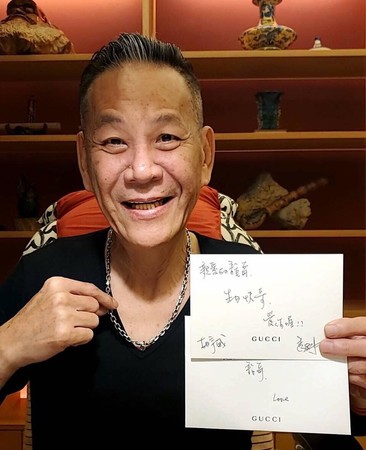 親愛的龍哥
生日快樂
愛你喔!!
GUCCI
龍哥
Love
GUCCI